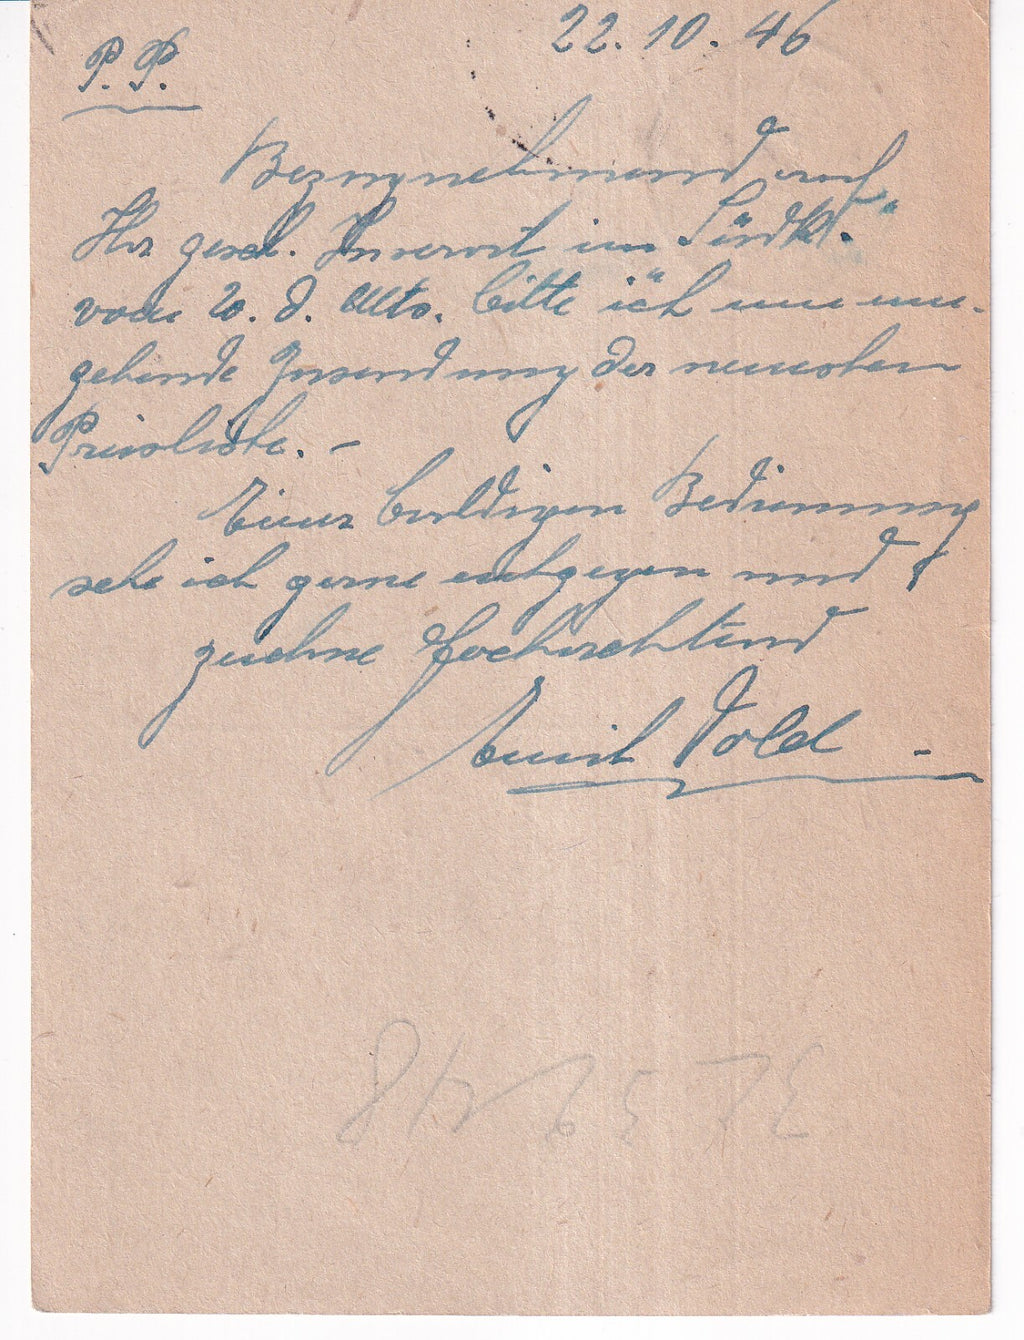 22.10.46
P.P.
Bezugnehmend auf
Ihr gesch. Inserat im
vom 20. d. Mts. bitte ich um um-
gehende Zusendung der neuesten
Preisliste. –
Einer baldigen Bedienung
sehe ich gerne entgegen und
zeichne Hochachtend
Emil